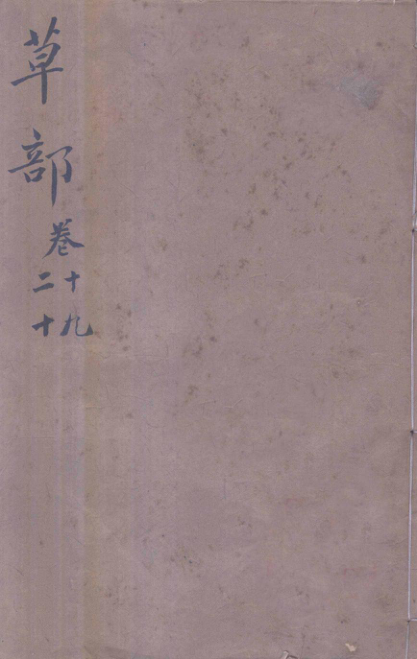 草部
卷十九
二十